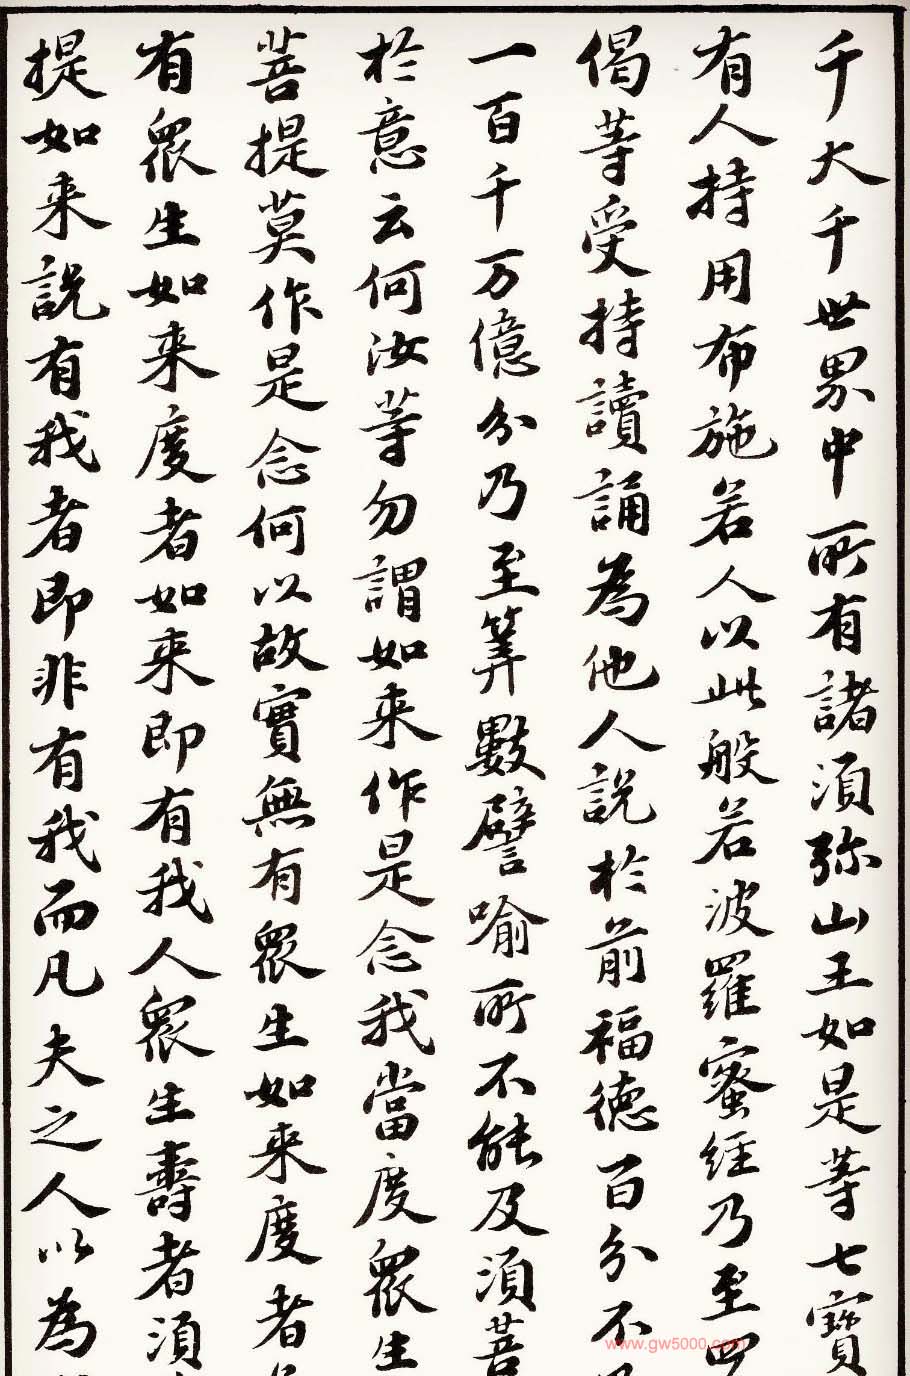 千大千世界中所有諸須弥山王如是等七寶
有人持用布施若人以此般若波羅蜜經乃至四
偈等受持讀誦為他人說於前福德百分不
一百千万億分乃至筭數譬喻所不能及須菩
於意云何汝等勿謂如来作是念我當度眾生
菩提莫作是念何以故實無有眾生如来度者
有眾生如来度者如来即有我人眾生壽者須
提如来說有我者即非有我而凡夫之人以為
www.gw5000.com